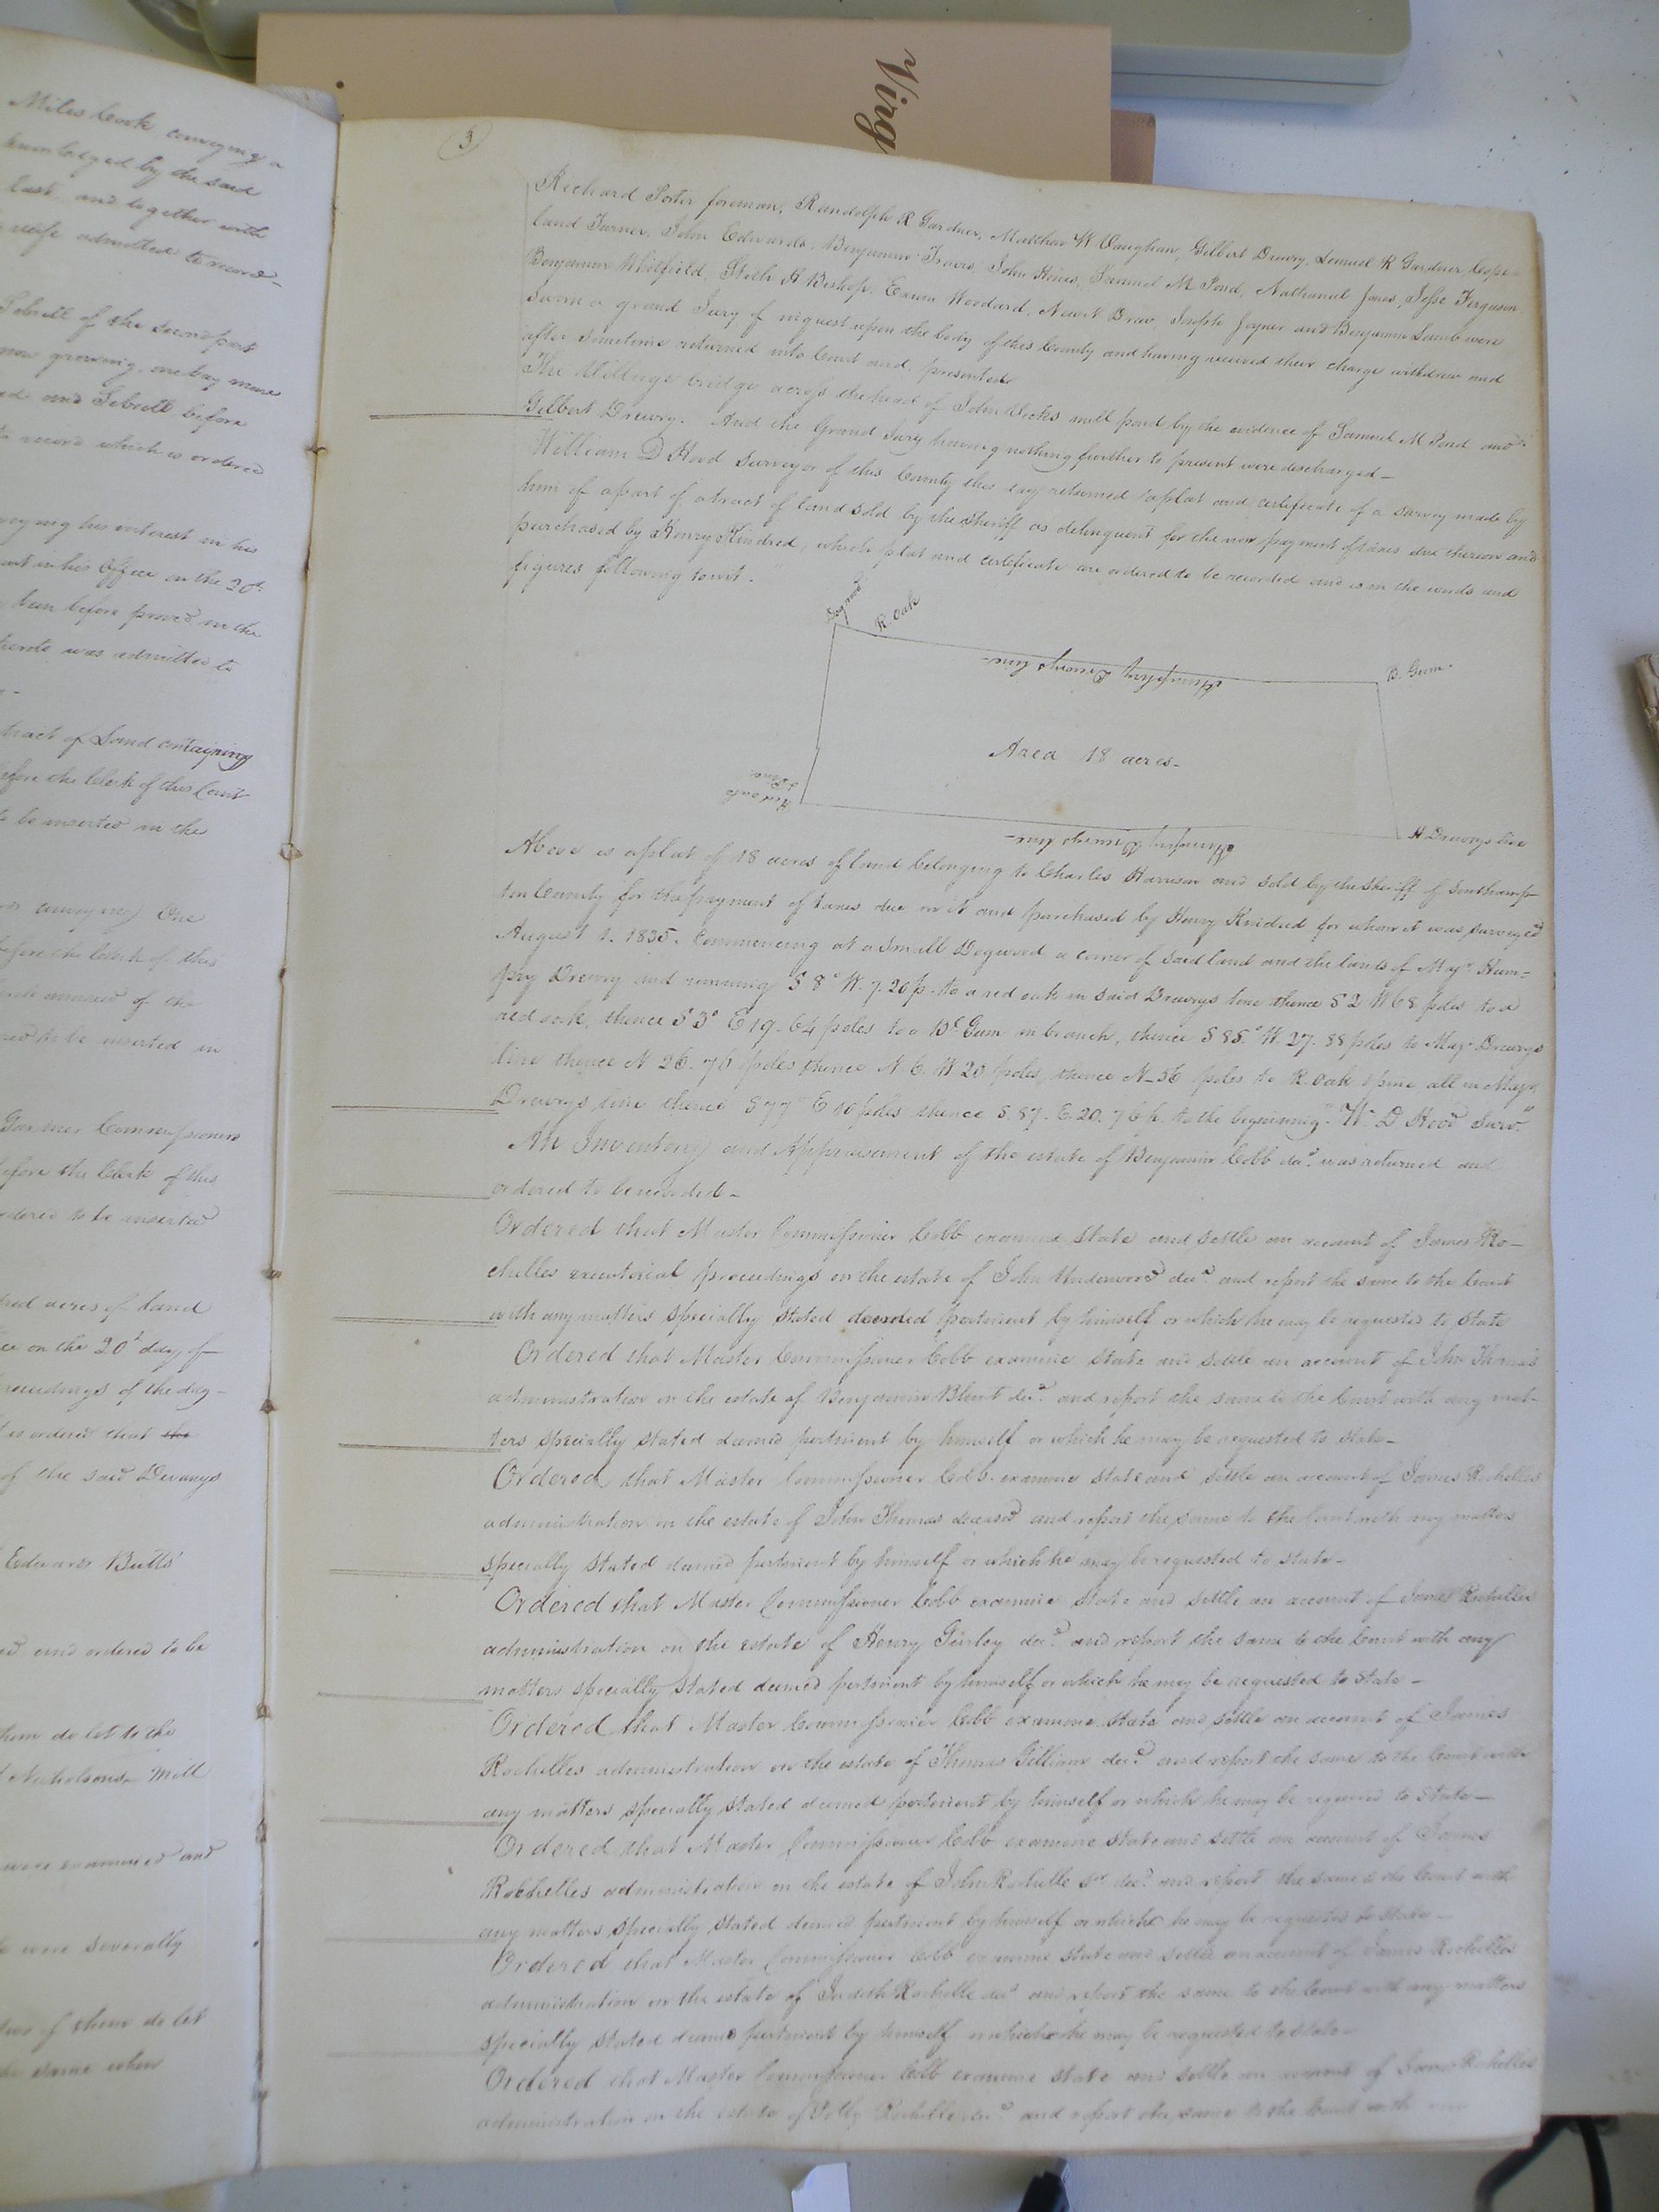 Virg
Miles Cook conveying a
knowledged by the said
last and together with
wife admitted to record
Sebrell of the second part
now growing, one bay mare
and Sebrell before
to record which is ordered
veying his interest in his
in his Office on the 20th
been before proved in the
was admitted to
tract of Land containing
before the Clerk of this Court
to be inserted in the
conveying One
before the Clerk of this
annexed of the
to be inserted in
Commissioners
before the Clerk of this
ordered to be inserted
acres of land
on the 20th day of
proceedings of the day
is ordered that the
of the said Devanys
Edward Butts
and ordered to be
them do let to the
Nicholsons Mill
were examined and
were severally
of them do let
same when
3
Richard Porter foreman, Randolph R Gardner, Matthew W Vaughan, Gilbert Drewry, Lemuel R Gardner, Cope-
land Turner, John Edwards, Benjamin Travis, John Hines, Samuel M Pond, Nathaniel Jones, Jesse Ferguson,
Benjamin Whitfield, Stith H Bishop, Exum Woodard, Joseph Joyner and Benjamin Lamb were
sworn a grand Jury of inquest upon the body of this County and having received their charge withdrew and
after sometime returned into Court and presented
The bridge across the head of John Vicks mill pond by the evidence of Samuel M Pond and
Gilbert Drewry. And the Grand Jury having nothing further to present were discharged-
William D Hood Surveyor of this County this day returned a plat and certificate of a survey made by
him of a part of a tract of land sold by the sheriff as delinquent for the non payment of taxes due thereon and
purchased by Henry Kindred, which plat and certificate are ordered to be recorded and is in the words and
figures following towit. "
Dogwood
R. Oak
Humphrey Drewrys line-
B. Gum-
Area 18 acres-
Red oak
& Pine
Humphry Drewrys line-
H Drewrys line
Above is a plat of 18 acres of land belonging to Charles Harrison and sold by the sheriff of Southamp-
ton County for the payment of taxes due on it and purchased by Henry Kindred for whom it was surveyed
August 1. 1835. Commencing at a small Dogwood a corner of said land and the lands of Majr Hum=
pry Drewry and running S 8° W. 7.20 p. to a red oak in said Drewrys line thence S 2 W 68 poles to a
red oak, thence S 3° E 19.64 poles to a Bk Gum in branch, thence S 85° W. 27.88 poles to Majr Drewrys
line thence N 26.76 poles thence N 6. W 20 poles, thence N 56 poles to R. Oak & pine all in Majr
Drewrys line thence S 77° E 10 poles thence S. 87. E. 20. 76 p. to the beginning." Wm D Hood Survr"
An Inventory and Appraisement of the estate of Benjamin Cobb decd was returned and
ordered to be recorded-
Ordered that Master Commissioner Cobb examine state and settle an account of James Ro-
chelles executorial proceedings on the estate of John Underwood decd and report the same to the Court
with any matters specially stated deemed pertinent by himself or which he may be requested to state
Ordered that Master Commissioner Cobb examine state and settle an account of John Thomas
administration on the estate of Benjamin Blunt decd and report the same to the Court with any mat-
ters specially stated deemed pertinent by himself or which he may be requested to state-
Ordered that Master Commissioner Cobb examine state and settle an account of James Rochelles
administration on the estate of John Thomas deceased and report the same to the Court with any matters
specially stated deemed pertinent by himself or which he may be requested to state-
Ordered that Master Commissioner Cobb examine state and settle an account of James Rochelles
administration on the estate of Henry Gurley decd and report the same to the Court with any
matters specially stated deemed pertinent by himself or which he may be requested to state-
Ordered that Master Commissioner Cobb examine state and settle an account of James
Rochelles administration on the estate of Thomas Gilliam decd and report the same to the Court with
any matters specially stated deemed pertinent by himself or which he may be required to state-
Ordered that Master Commissioner Cobb examine state and settle an account of James
Rochelles administration on the estate of John Rochelle Sr decd and report the same to the Court with
any matters specially stated deemed pertinent by himself or which he may be requested to state-
Ordered that Master Commissioner Cobb examine state and settle an account of James Rochelles
administration on the estate of Judith Rochelle decd and report the same to the Court with any matters
specially stated deemed pertinent by himself or which he may be requested to state-
Ordered that Master Commissioner Cobb examine state and settle an account of James Rochelles
administration on the estate of Polly Rochelle decd and report the same to the Court with